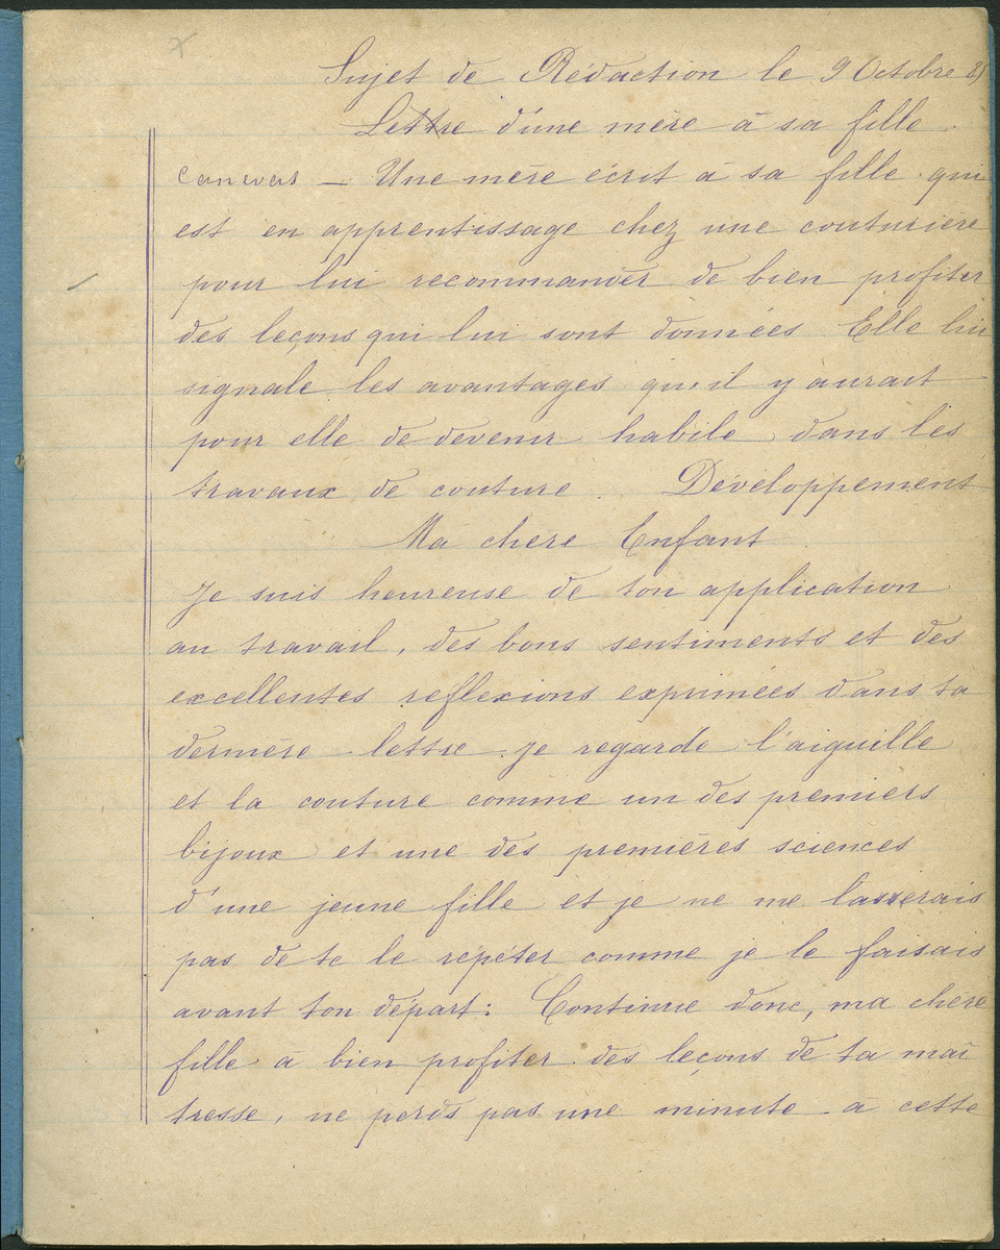 Sujet de Rédaction le 9 Octobre
Lettre d'une mère à sa fille.
Canevas — Une mère écrit à sa fille qui
est en apprentissage chez une couturière
pour lui recommander de bien profiter
des leçons qui lui sont données. Elle lui
signale les avantages qu'il y aurait
pour elle de devenir habile dans les
travaux de couture. Développement
Ma chère Enfant
Je suis heureuse de ton application
au travail, des bons sentiments et des
excellentes réflexions exprimées dans ta
dernière lettre. je regarde l'aiguille
et la couture comme un des premiers
bijoux et une des premières sciences
d'une jeune fille et je ne me lasserais
pas de te le répéter comme je le faisais
avant ton départ : Continue donc, ma chère
fille à bien profiter des leçons de ta maî
tresse, ne perds pas une minute à cette